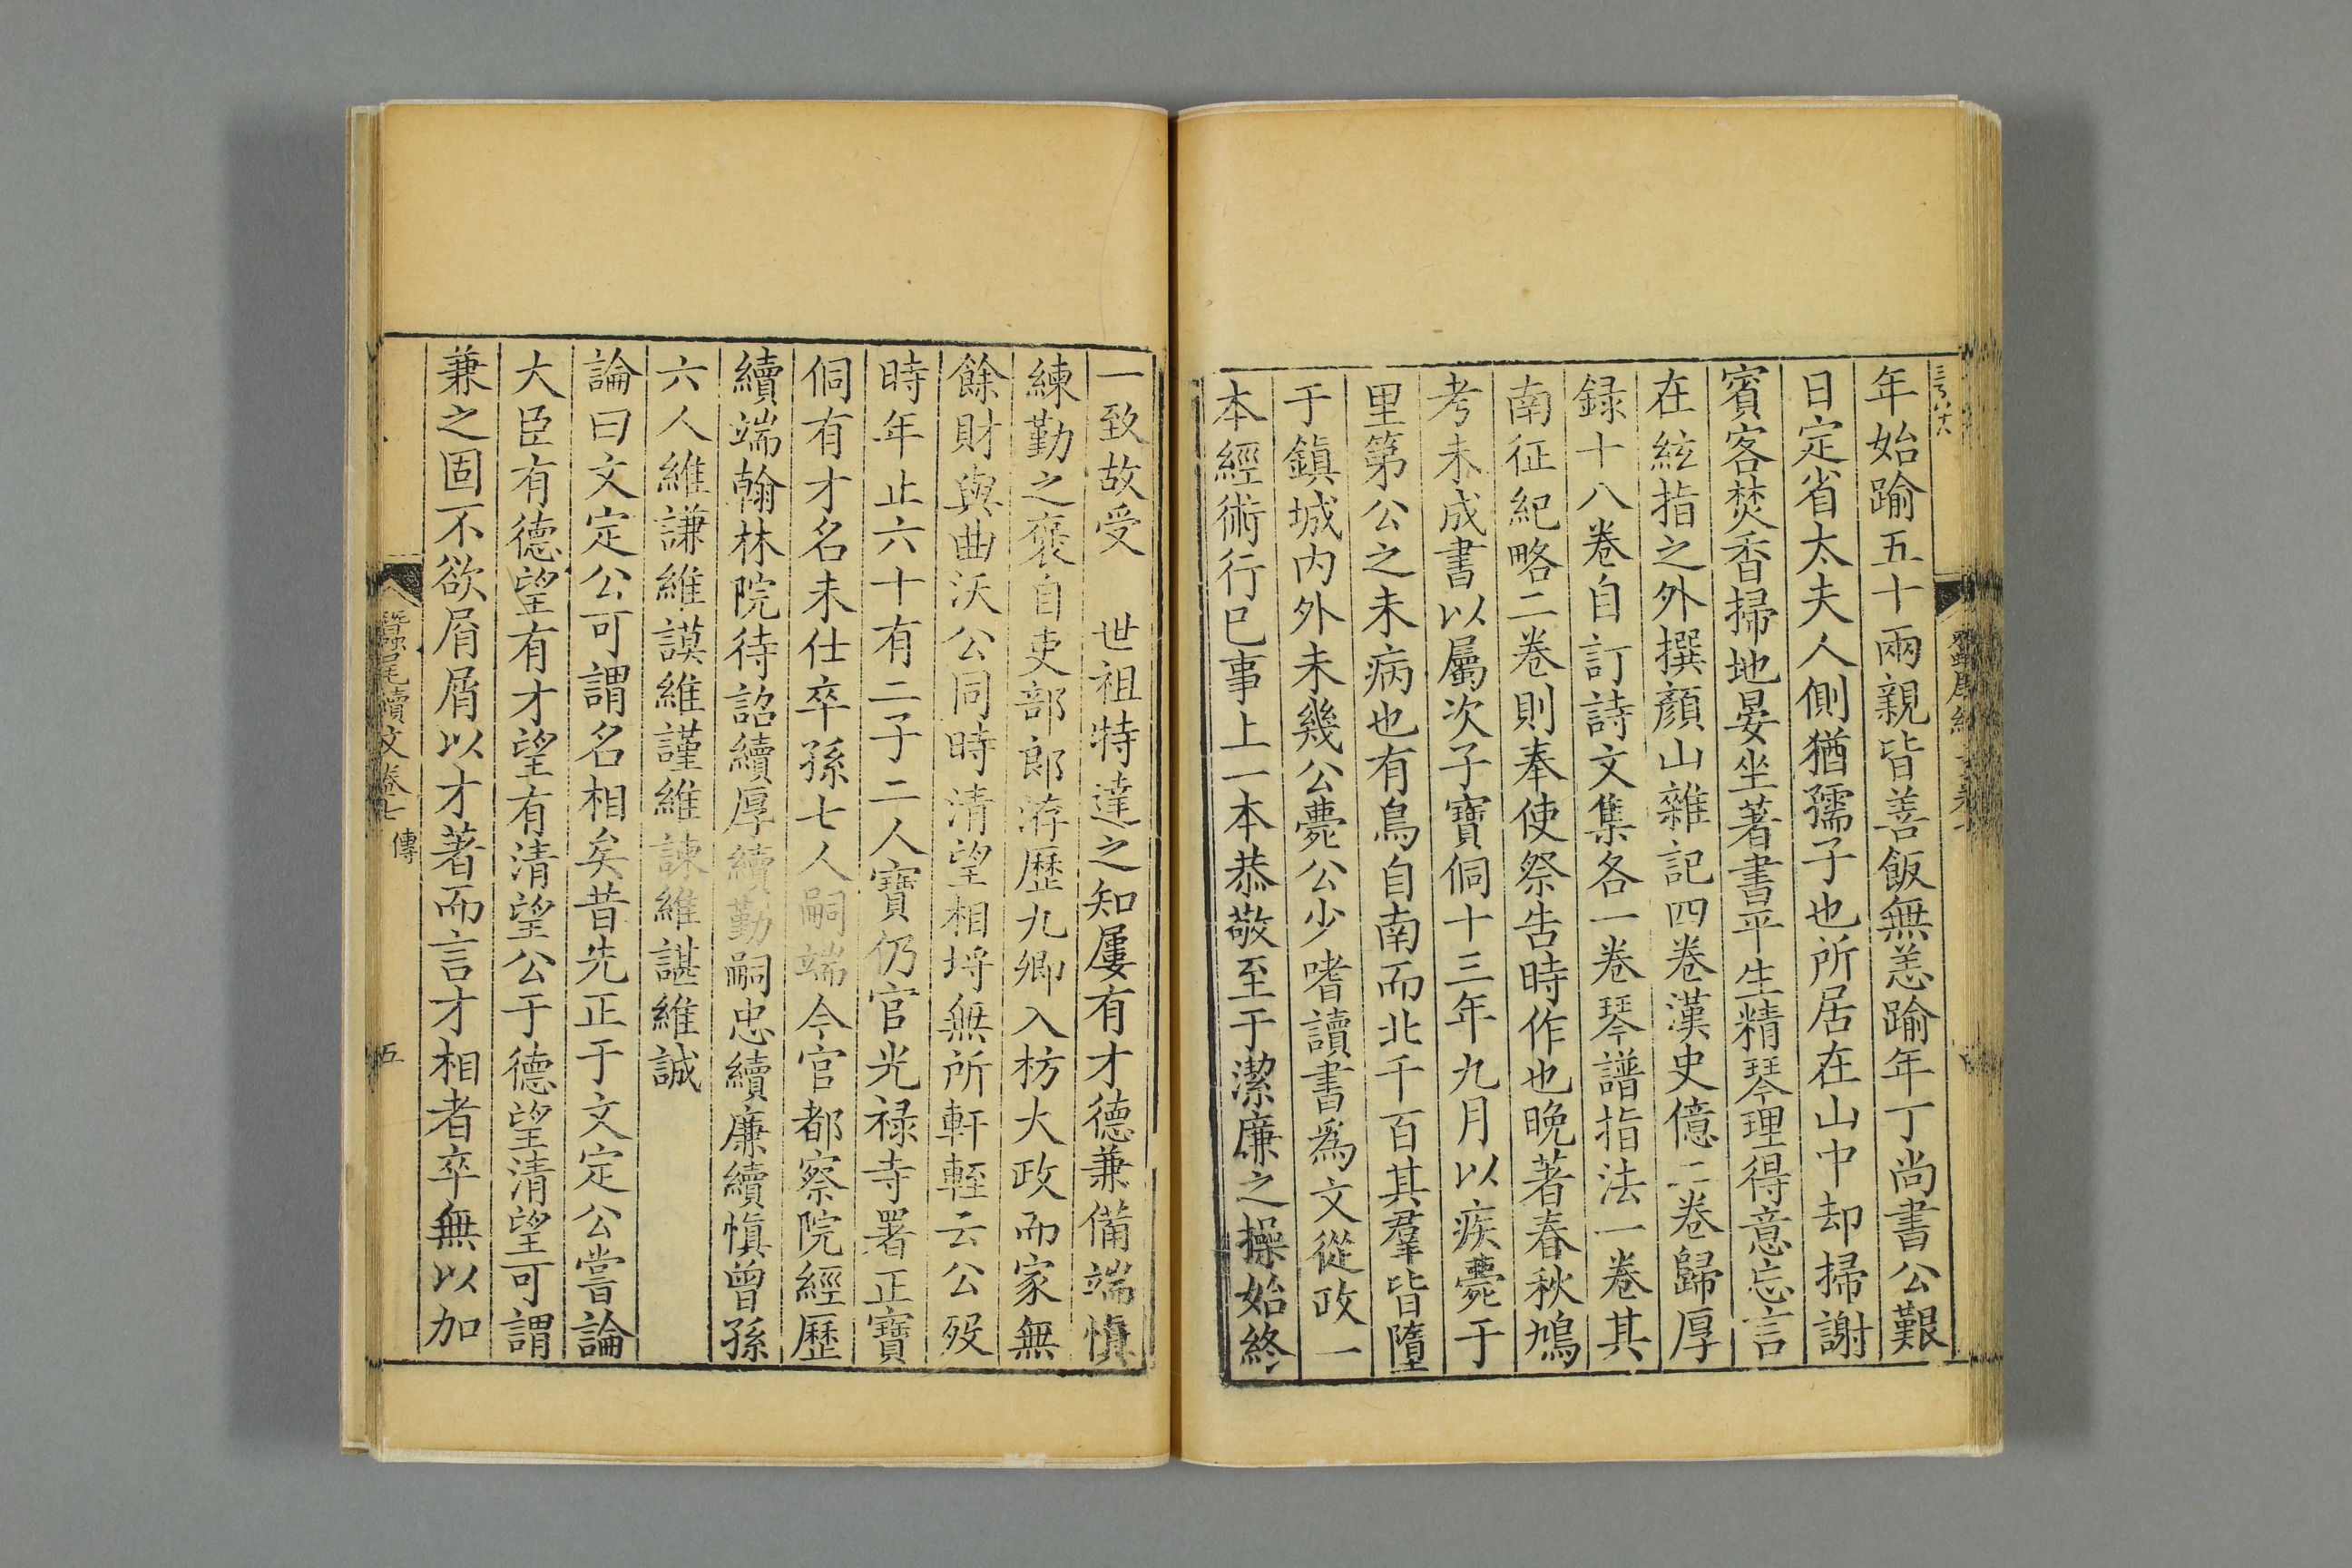 年始踰五十兩親皆善飯無恙踰年丁尚書公艱
日定省太夫人側猶孺子也所居在山中却掃謝
賓客焚香掃地晏坐著書平生精琴理得意忘言
在絃指之外撰顏山雜記四卷漢史億二卷歸厚
録十八卷自訂詩文集各一卷琴譜指法一卷其
南征紀略二卷則奉使祭告時作也晚著春秋鳩
考未成書以屬次子寶侗十三年九月以疾薨于
里第公之未病也有鳥自南而北千百其羣皆墮
于鎮城内外未幾公薨公少嗜讀書爲文從政一
本經術行已事上一本恭敬至于潔廉之操始終
一致故受　世祖特達之知屢有才德兼備端慎
練勤之褒自吏部郎洊歷九卿入枋大政而家無
餘財與曲沃公同時清望相埒無所軒輊云公歿
時年止六十有二子二人寶仍官光禄寺署正寶
侗有才名未仕卒孫七人嗣端今官都察院經歷
續端翰林院待詔續厚續勤嗣忠續廉續慎曾孫
六人維謙維謨維謹維諫維諶維誠
論曰文定公可謂名相矣昔先正于文定公嘗論
大臣有德望有才望有清望公于德望清望可謂
兼之固不欲屑屑以才著而言才相者卒無以加
蠶尾續文卷七　傳
五